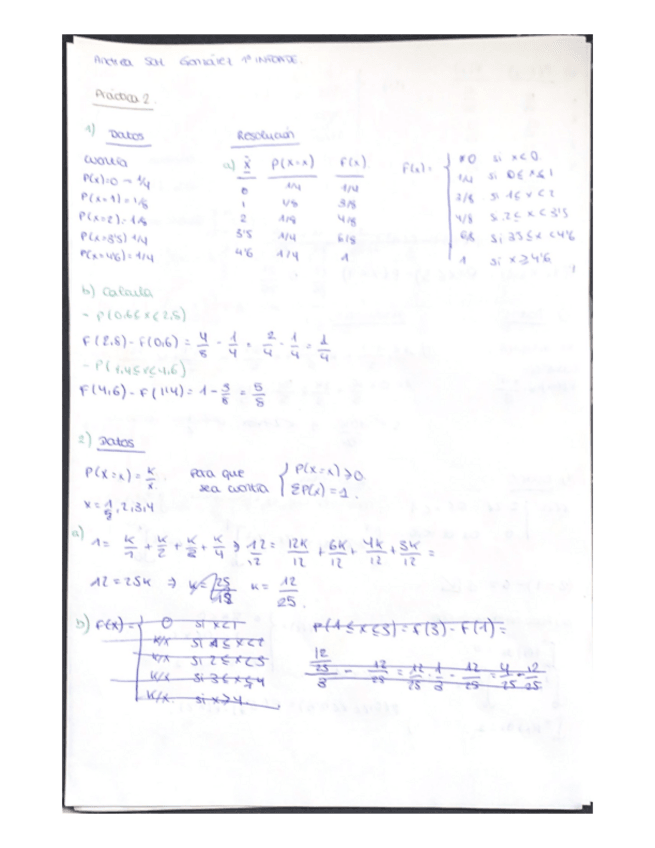 Práctica 2.
1) Datos
Resolución
cuantía
P(x)=0 → 1/4
P(x=1)=1/8
P(x=2)=1/8
P(x=3'5) 1/4
P(x=4'6)=1/4
a) x P(X=x) F(x)
0 1/4 1/4
1 1/8 3/8
2 1/8 4/8
3'5 1/4 6/8
4'6 1/4 1
F(x)=
0 si x<0
1/4 si 0≤x≤1
3/8 si 1≤x<2
4/8 si 2≤x<3'5
6/8 si 3'5≤x<4'6
1 si x≥4'6
b) Calcula
- P(0,6≤x≤2,8)
F(2,8) - F(0,6) = 4/8 - 1/4 = 2/4 - 1/4 = 1/4
- P(1,4≤x≤4,6)
F(4,6) - F(1'4) = 1 - 3/8 = 5/8
2) Datos
P(X=x) = k/x
para que sea cuantía { P(X=x)≥0
ΣP(x)=1.
a) 1 = k/1 + k/2 + k/3 + k/4 → 12/12 = 12k/12 + 6k/12 + 4k/12 + 3k/12 =
12=25k ⇒ k=25/12 k=12/25.
b) F(x)=
0 si x<1
k/x si 1≤x<2
k/x si 2≤x<3
k/x si 3≤x≤4
k/x si x≥4.
P(1≤x≤3)=F(3)-F(1)=
12/25/3 - 12/25 = 12/25 · 1/3 - 12/25 = 4/25 - 12/25